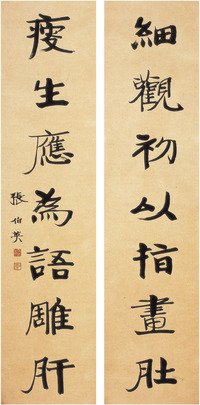 細觀初以指畫肚
瘦生應為語雕肝
張伯英